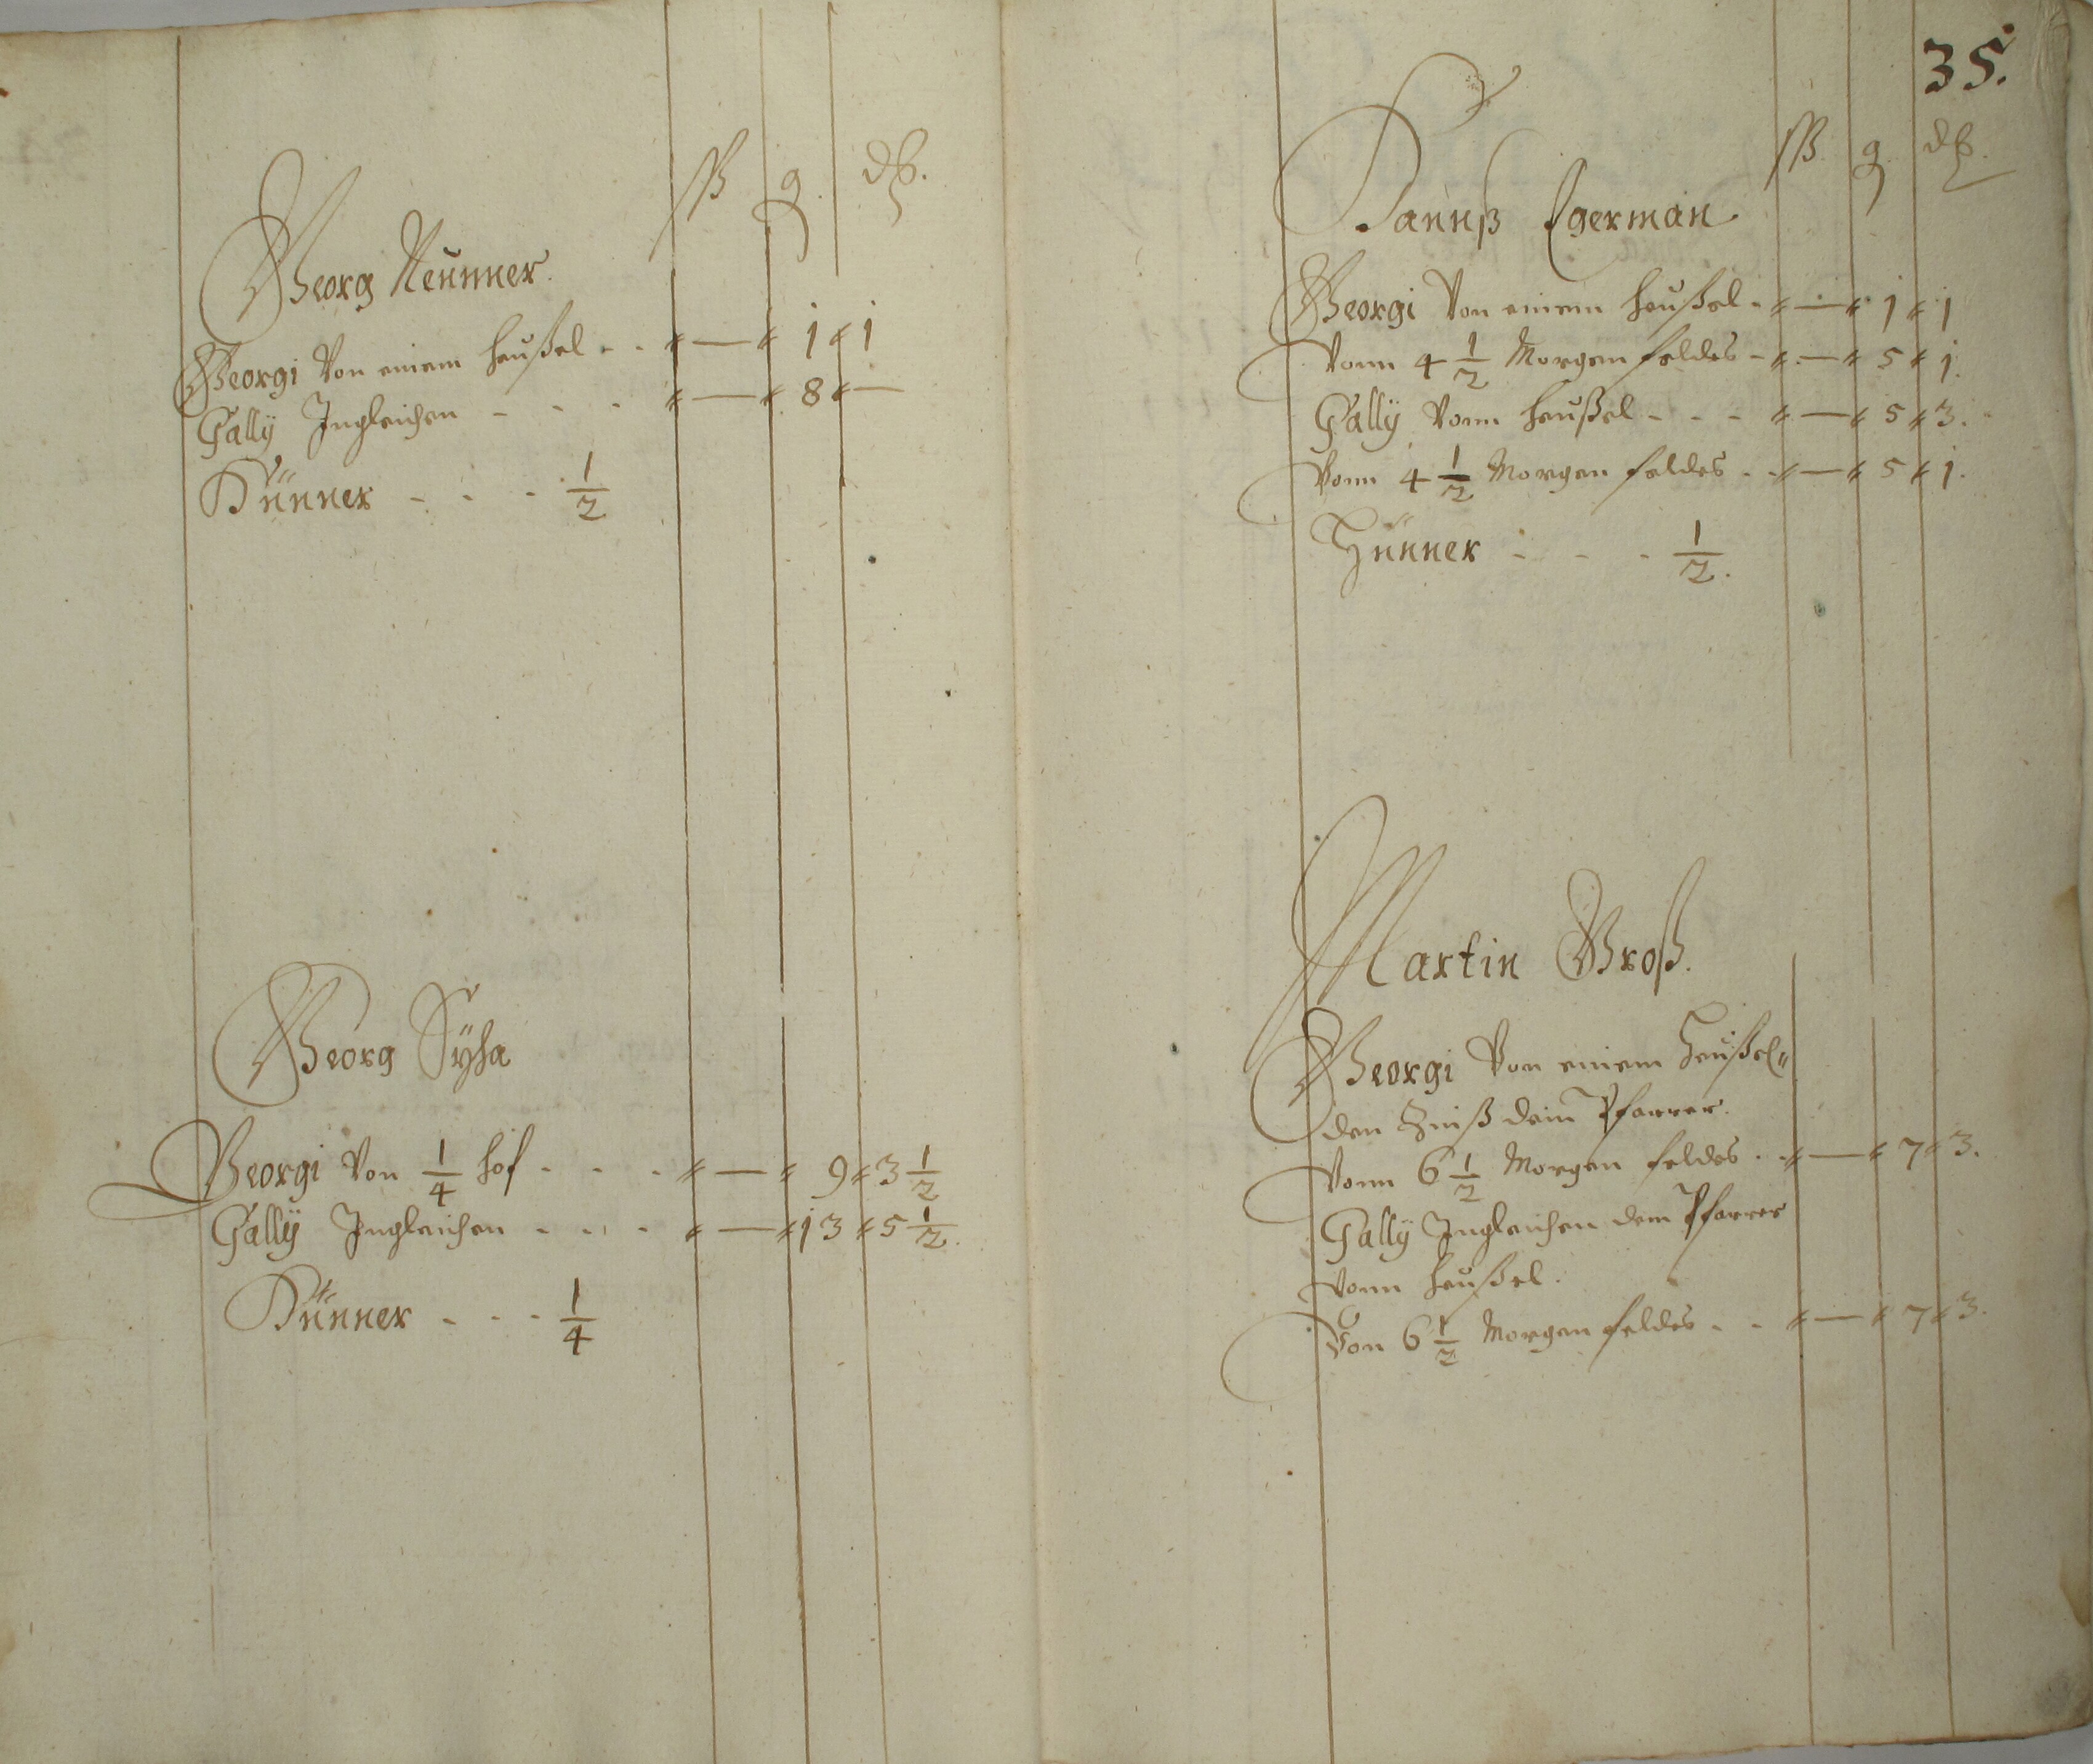 ßß g dß.
Georg Neünner.
Georgi Von einem heußel - - " — " 1 " 1
Gally Ingleichen - - - " — " 8 " —
Hünner - - - 1/2
Georg Sÿha
Georgi Von 1/4 hof - - - " — " 9 " 3 1/2
Gally Ingleichen - - - - " — " 13 " 5 1/2.
Hünner - - - 1/4
35.
ßß g dß.
Hannß Egerman
Georgi Von einem heußel - " — " 1 " 1
Vonn 4 1/2 Morgen feldes - " — " 5 " 1.
Gally Vonn heußel - - - " — " 5 " 3.
Vonn 4 1/2 Morgen feldes - " — " 5 " 1.
Hünner - - - 1/2.
Martin Groß.
Georgi Von einem Heußel"
den Zinß dem Pfarrer.
Vonn 6 1/2 Morgen feldes - " — " 7 " 3.
Gally Ingleichen dem Pfarrer
vonn heußel.
Von 6 1/2 Morgen feldes - - " — " 7 " 3.